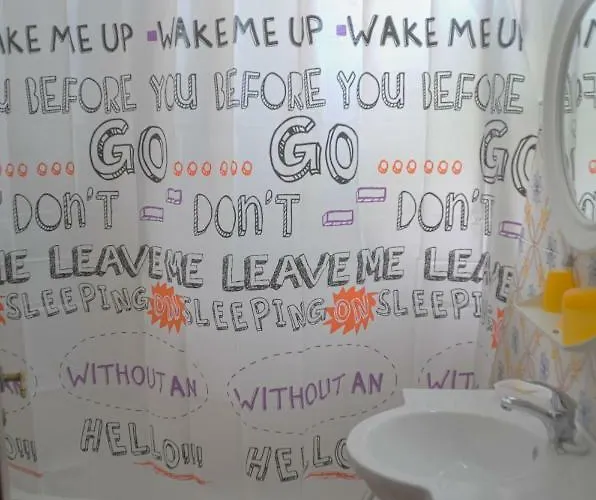 WAKE ME UP WAKE ME UP WAKE ME UP
YOU BEFORE YOU BEFORE YOU BEFORE
GO GO GO
DON'T DON'T DON'T
ME LEAVE ME LEAVE ME LEAVE
SLEEPING ON SLEEPING ON SLEEPING
WITHOUT AN WITHOUT AN WITHOUT
HELLO!!! HELLO